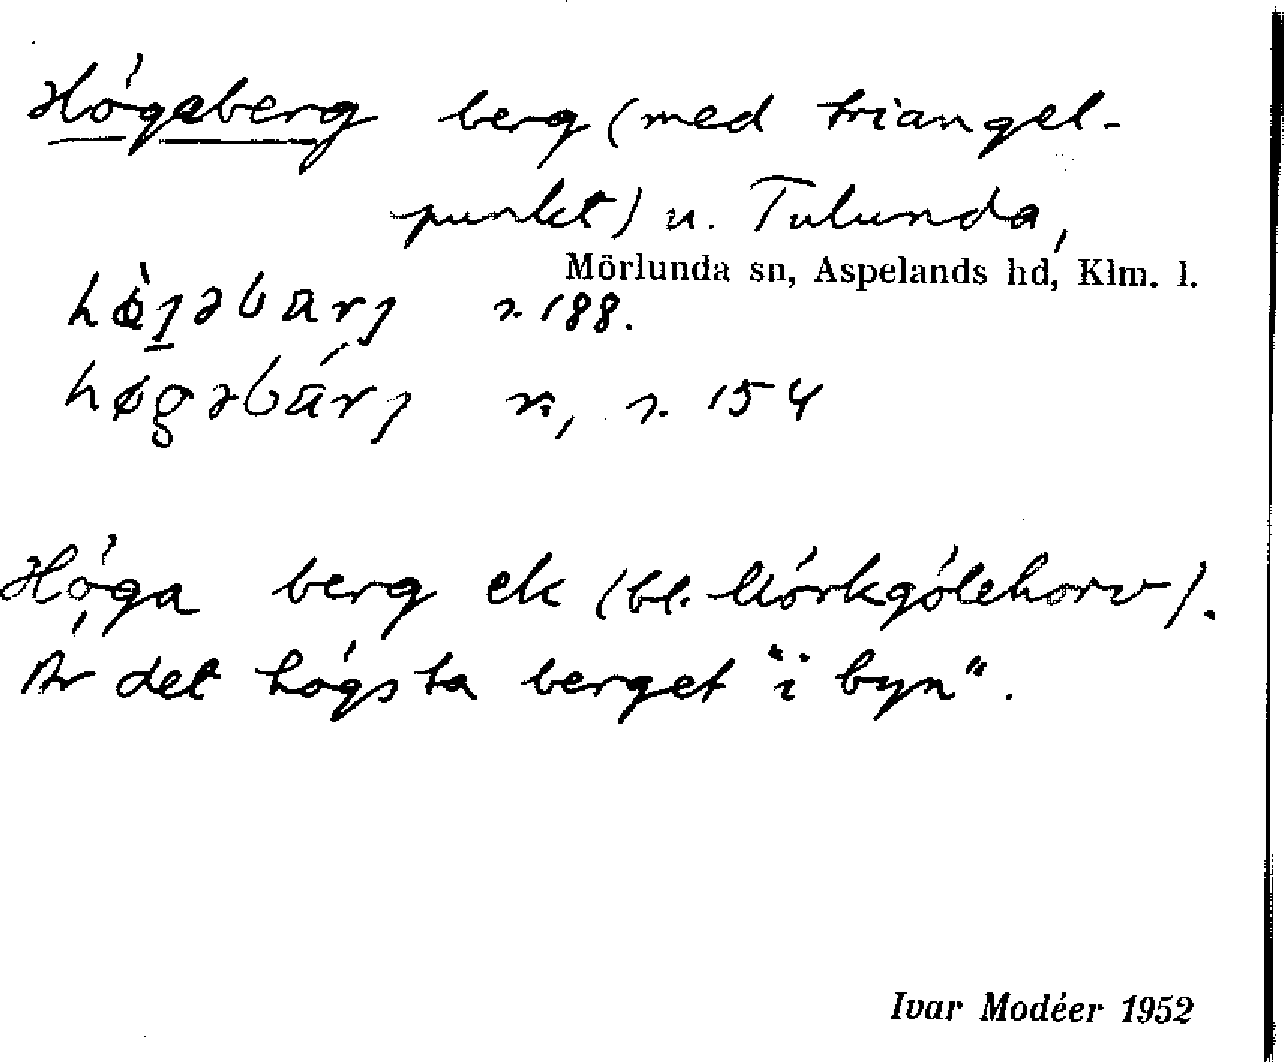 Högeberg berg (med triangel-
punkt) u. Tulunda,
Mörlunda sn, Aspelands hd, Klm. l.
s. 188.
s. 154
Höga berg ek (bl. Mörkgölehorv).
Är det högsta berget "i byn".
Ivar Modéer 1952